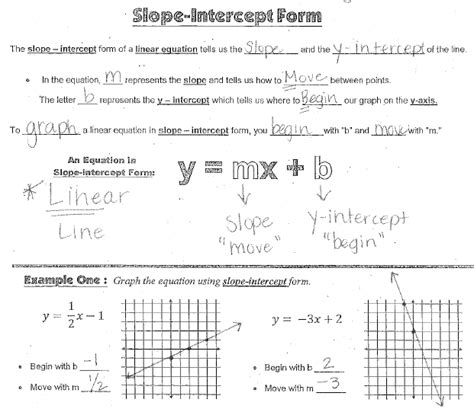 Slope-Intercept Form
The slope – intercept form of a linear equation tells us the Slope and the y-intercept of the line.
• In the equation, m represents the slope and tells us how to Move between points.
The letter b represents the y – intercept which tells us where to Begin our graph on the y-axis.
To graph a linear equation in slope – intercept form, you begin with "b" and move with "m."
An Equation in
Slope-Intercept Form:
y = mx + b
* Linear
Line
↓ ↓
Slope y-intercept
"move" "begin"
Example One : Graph the equation using slope-intercept form.
y = 1/2 x − 1
• Begin with b -1
• Move with m 1/2
y = −3x + 2
• Begin with b 2
• Move with m -3